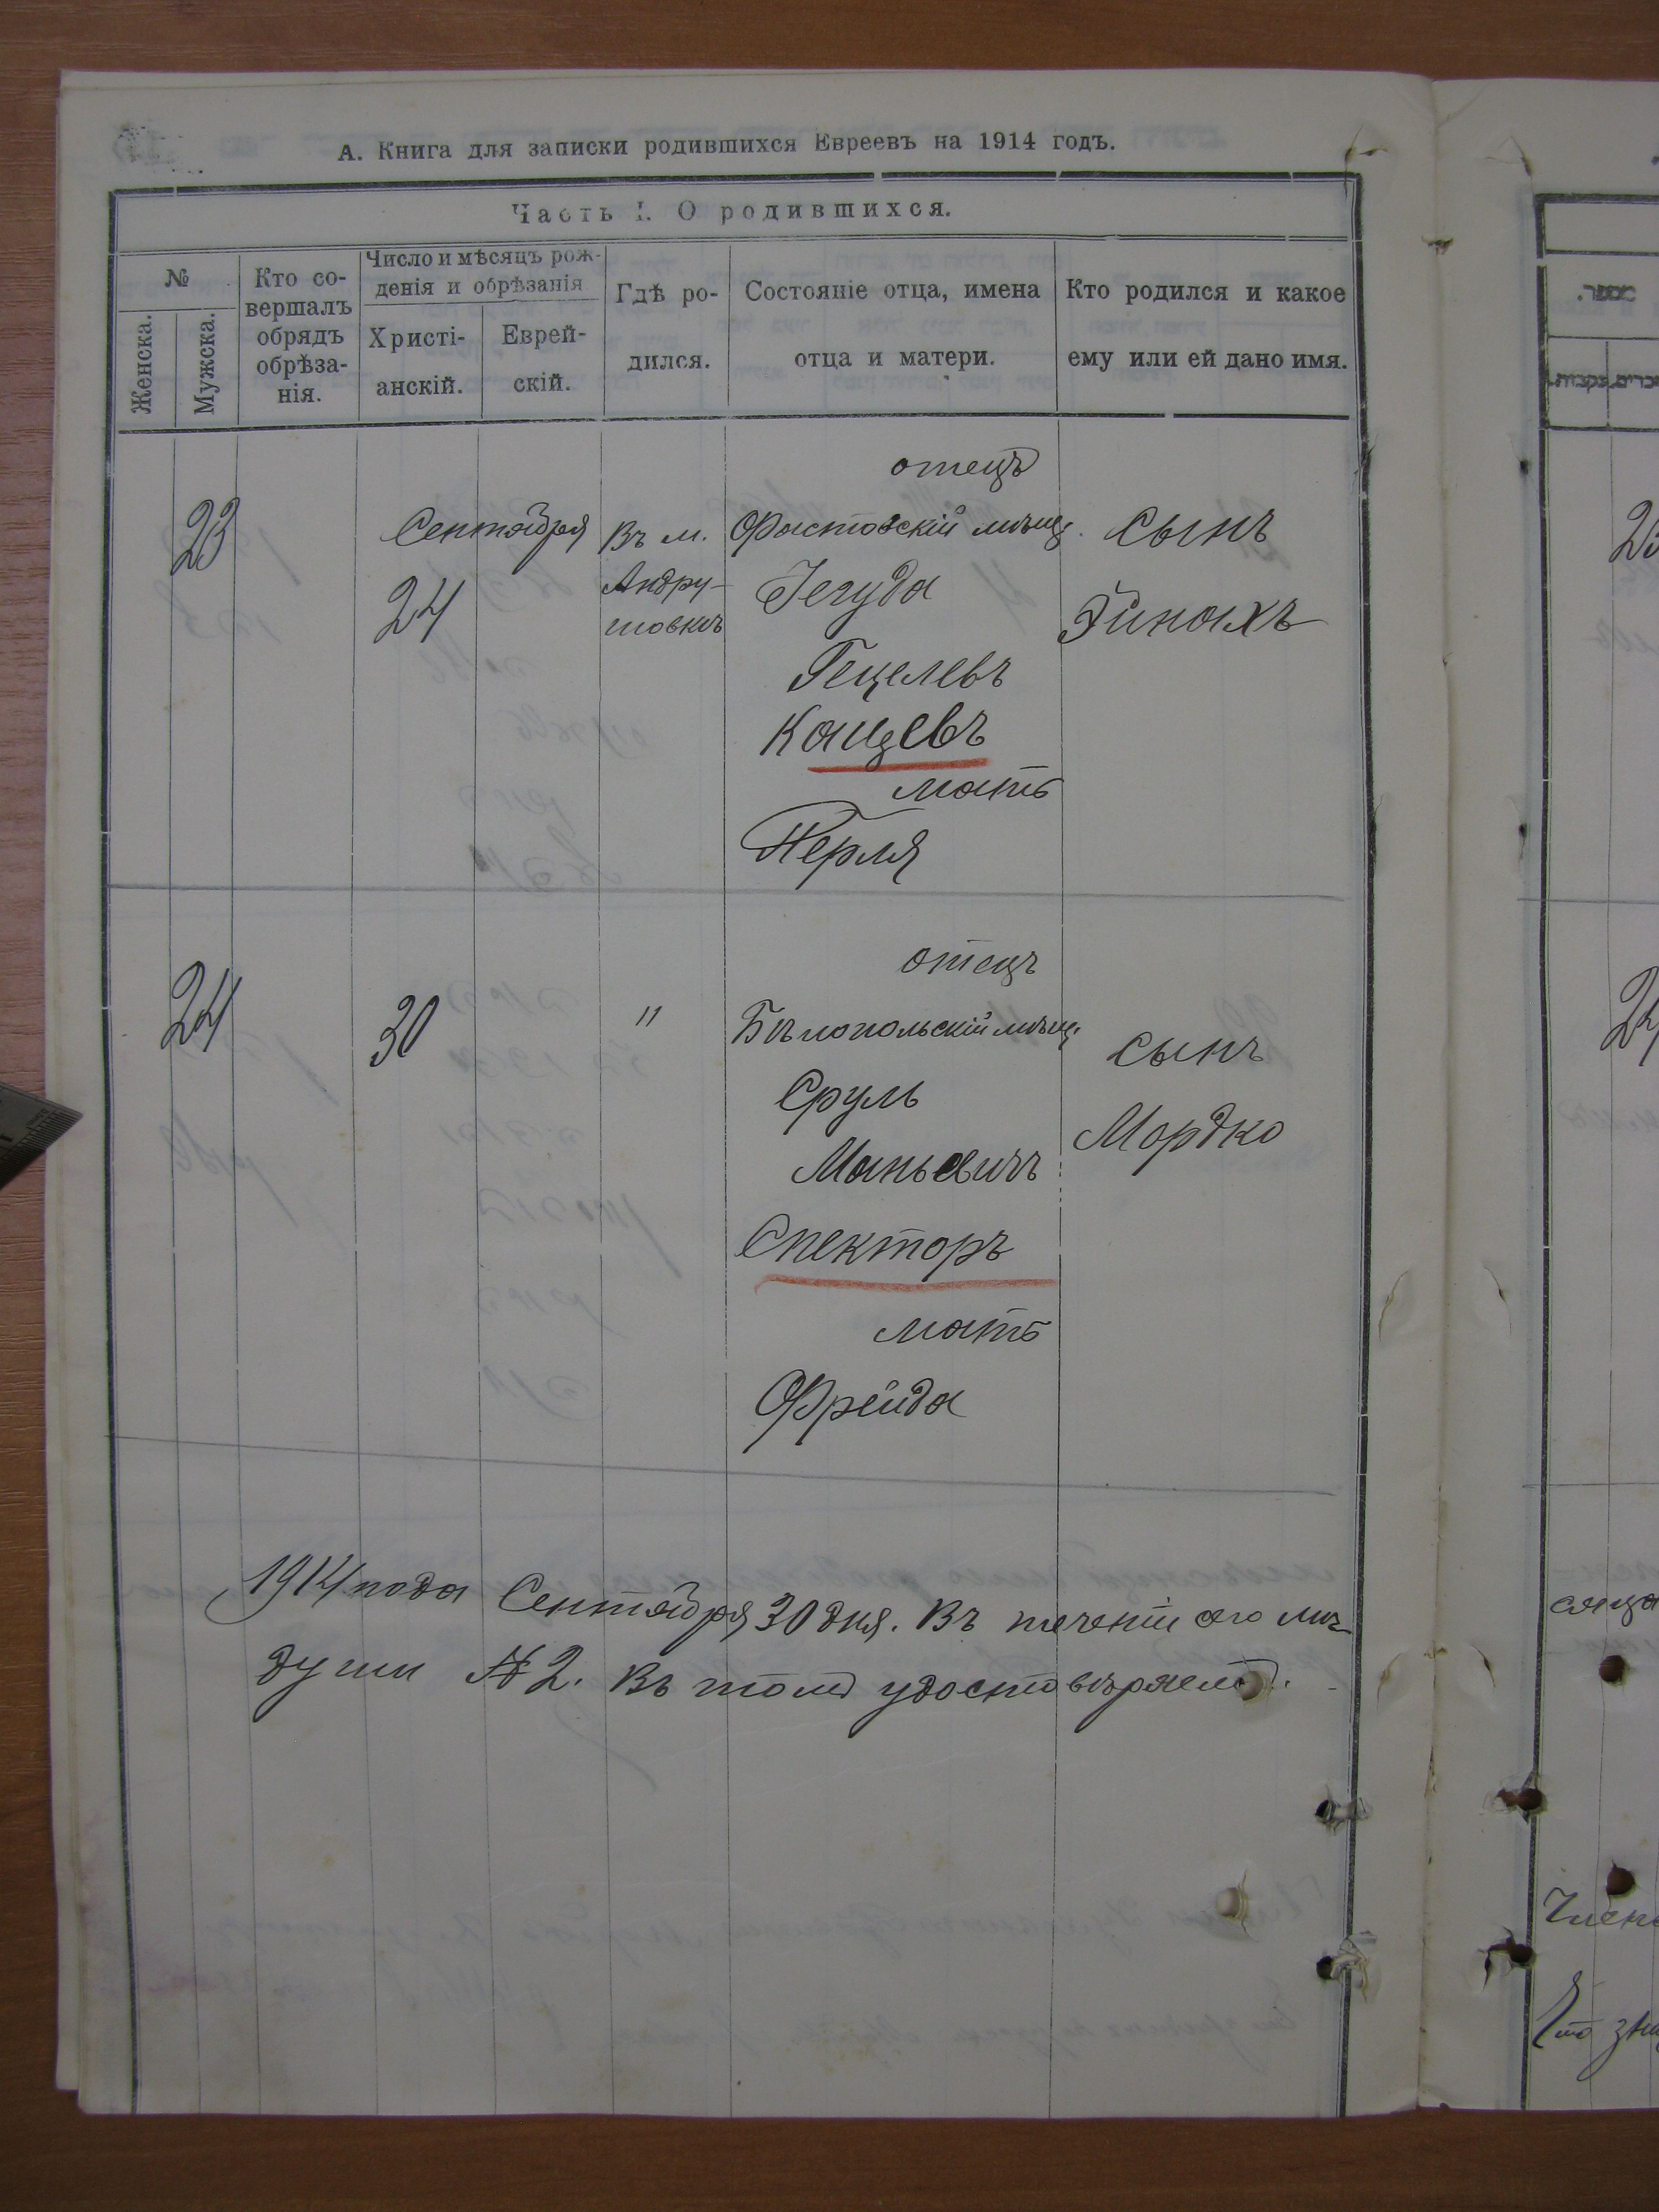 А. Книга для записки родившихся Евреевъ на 1914 годъ.
Часть I. О родившихся.
№
Женска.
Мужска.
Кто со-
вершалъ
обрядъ
обрѣза-
нія.
Число и мѣсяцъ рож-
денія и обрѣзанія
Христі-
анскій.
Еврей-
скій.
Гдѣ ро-
дился.
Состояніе отца, имена
отца и матери.
Кто родился и какое
ему или ей дано имя.
23
Сентября
24
Въ м.
Андру-
шовкѣ
отецъ
Фастовскій мѣщ.
Іегуда
Гецелевъ
Кацевъ
мать
Перля
сынъ
Эйнахъ
24
30
"
отецъ
Бѣлопольскій мѣщ.
Сруль
Маньевичъ
Спекторъ
мать
Фрейда
сынъ
Мордко
1914 года Сентября 30 дня. Въ теченіи сего
души № 2. Въ томъ удостовѣряемъ.